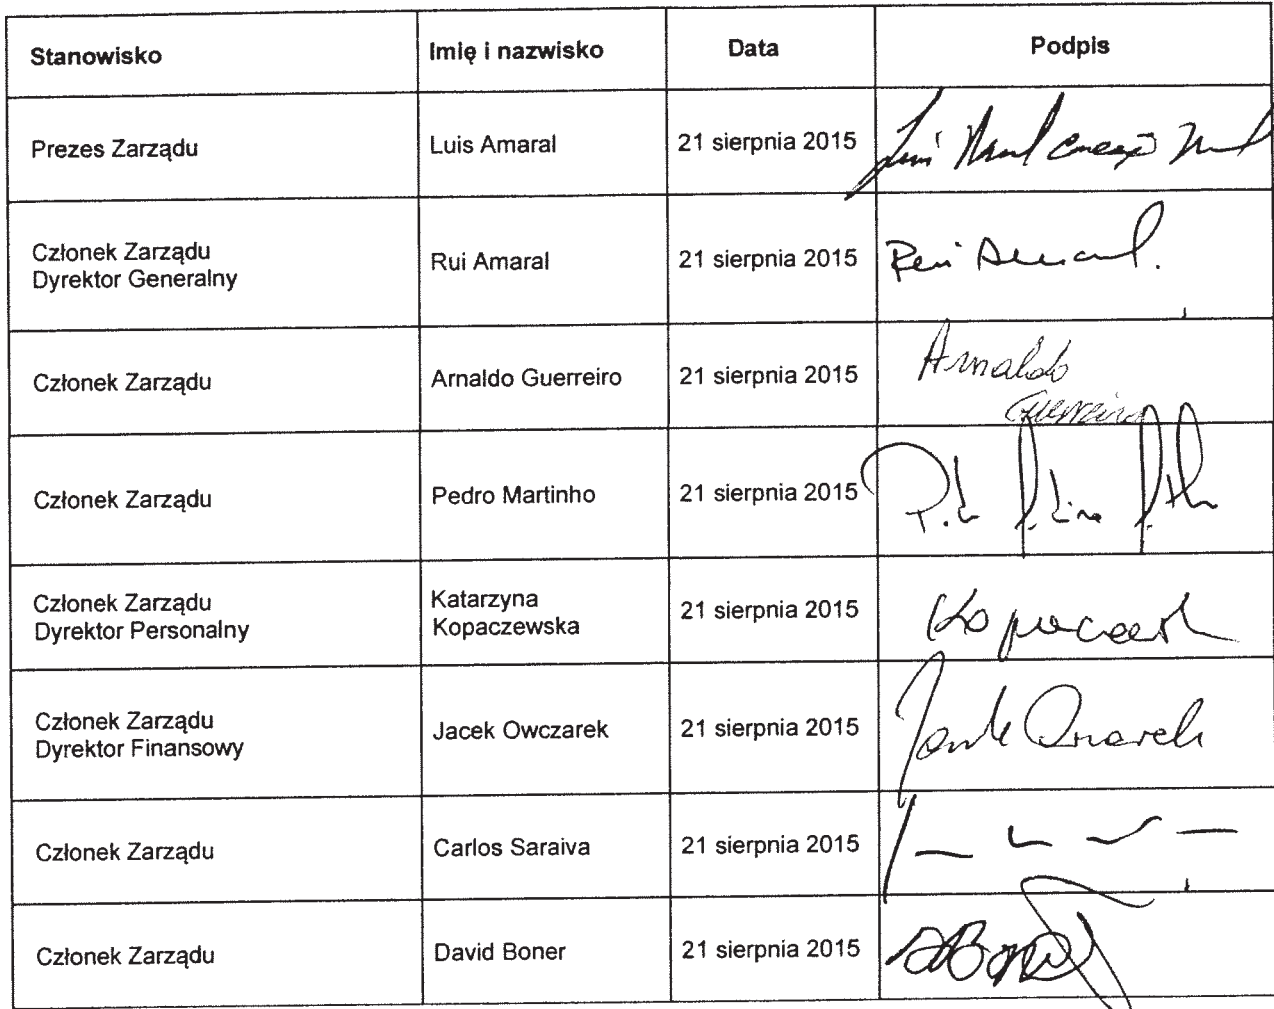 Stanowisko
Imię i nazwisko
Data
Podpis
Prezes Zarządu
Luis Amaral
21 sierpnia 2015
Członek Zarządu
Dyrektor Generalny
Rui Amaral
21 sierpnia 2015
Rui Amaral.
Członek Zarządu
Arnaldo Guerreiro
21 sierpnia 2015
Arnaldo
Guerreiro
Członek Zarządu
Pedro Martinho
21 sierpnia 2015
Członek Zarządu
Dyrektor Personalny
Katarzyna
Kopaczewska
21 sierpnia 2015
Członek Zarządu
Dyrektor Finansowy
Jacek Owczarek
21 sierpnia 2015
Członek Zarządu
Carlos Saraiva
21 sierpnia 2015
Członek Zarządu
David Boner
21 sierpnia 2015